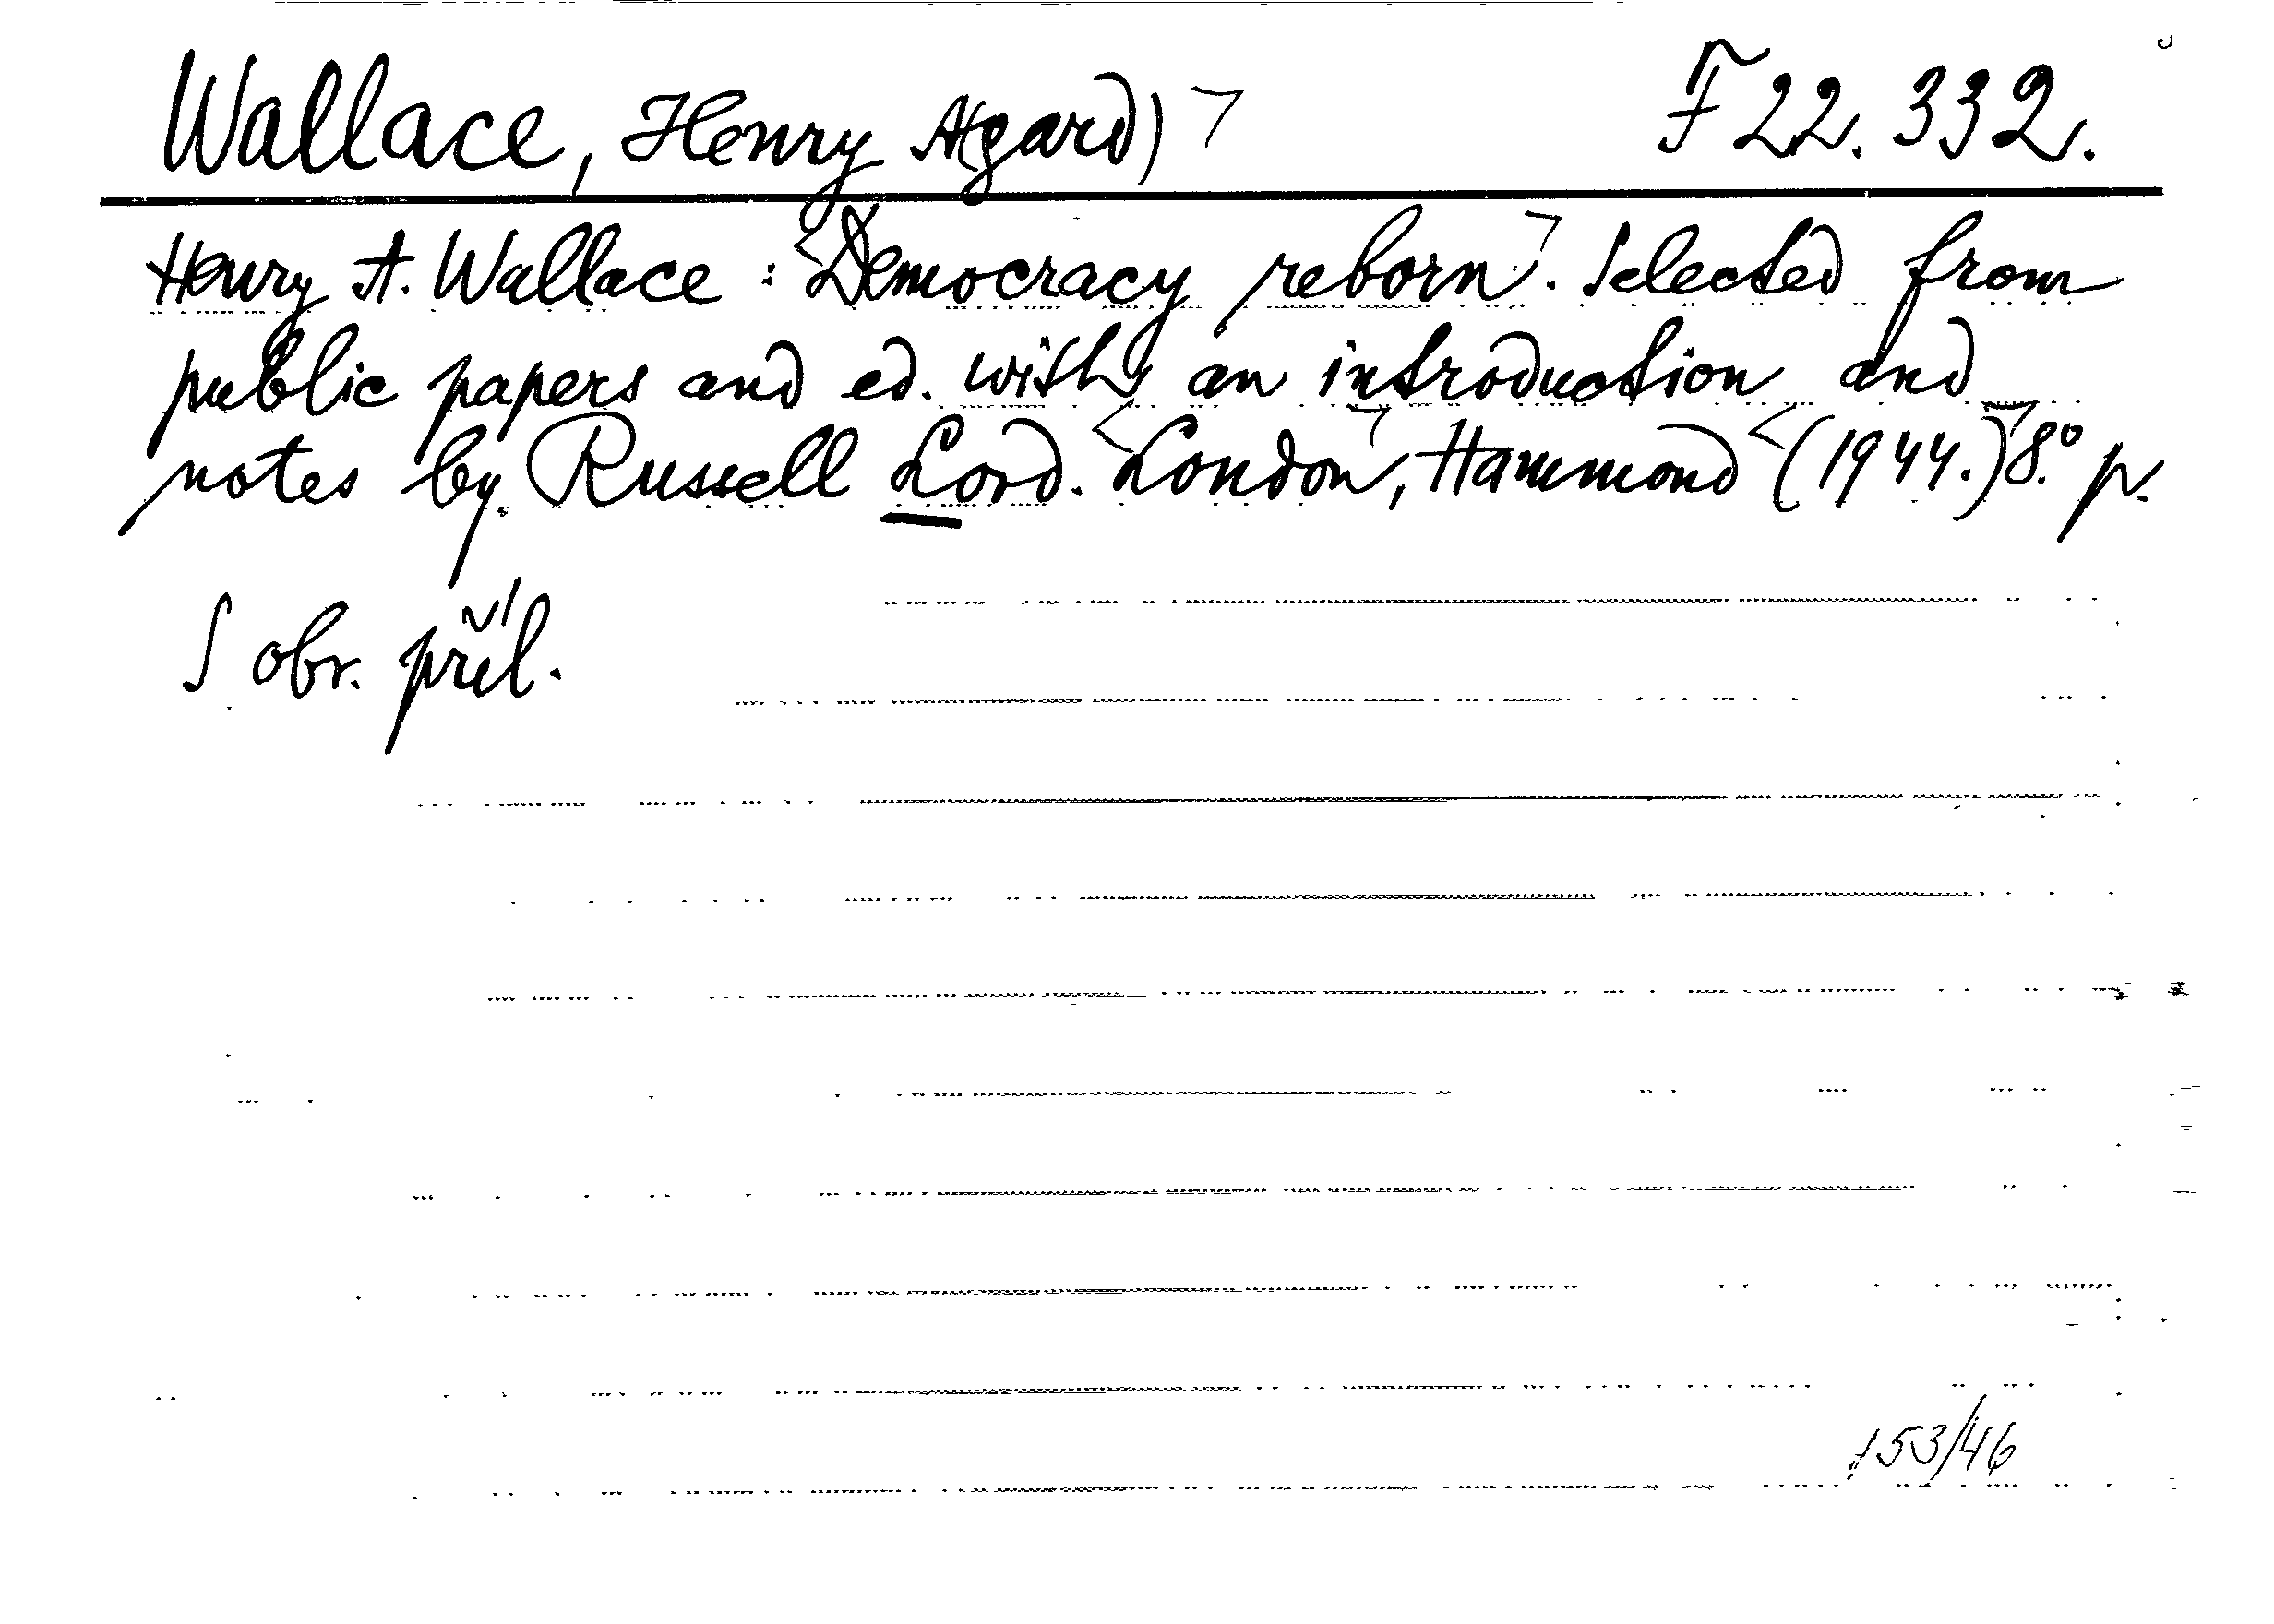 Wallace, Henry A(gard) F 22.332.
Henry A. Wallace: Democracy reborn. Selected from
public papers and ed. with an introduction and
notes by Russell Lord. London, Hammond (1944.) 8.° p.
S obr. příl.
153/46